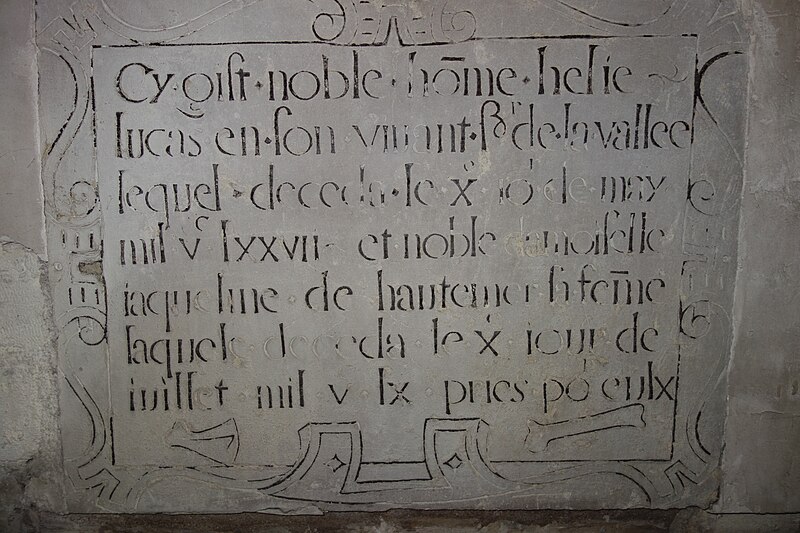 Cy·gist·noble·hōme·helie
lucas en·son viuant·sʳ de·la vallee
lequel·deceda·le·xᵉ ioʳ de·may
mil vᶜ lxxvii et noble damoiselle
iaqueline·de hautemer sa fēme
laquele deceda·le x iour de
iuillet·mil v lx pries poʳ eulx